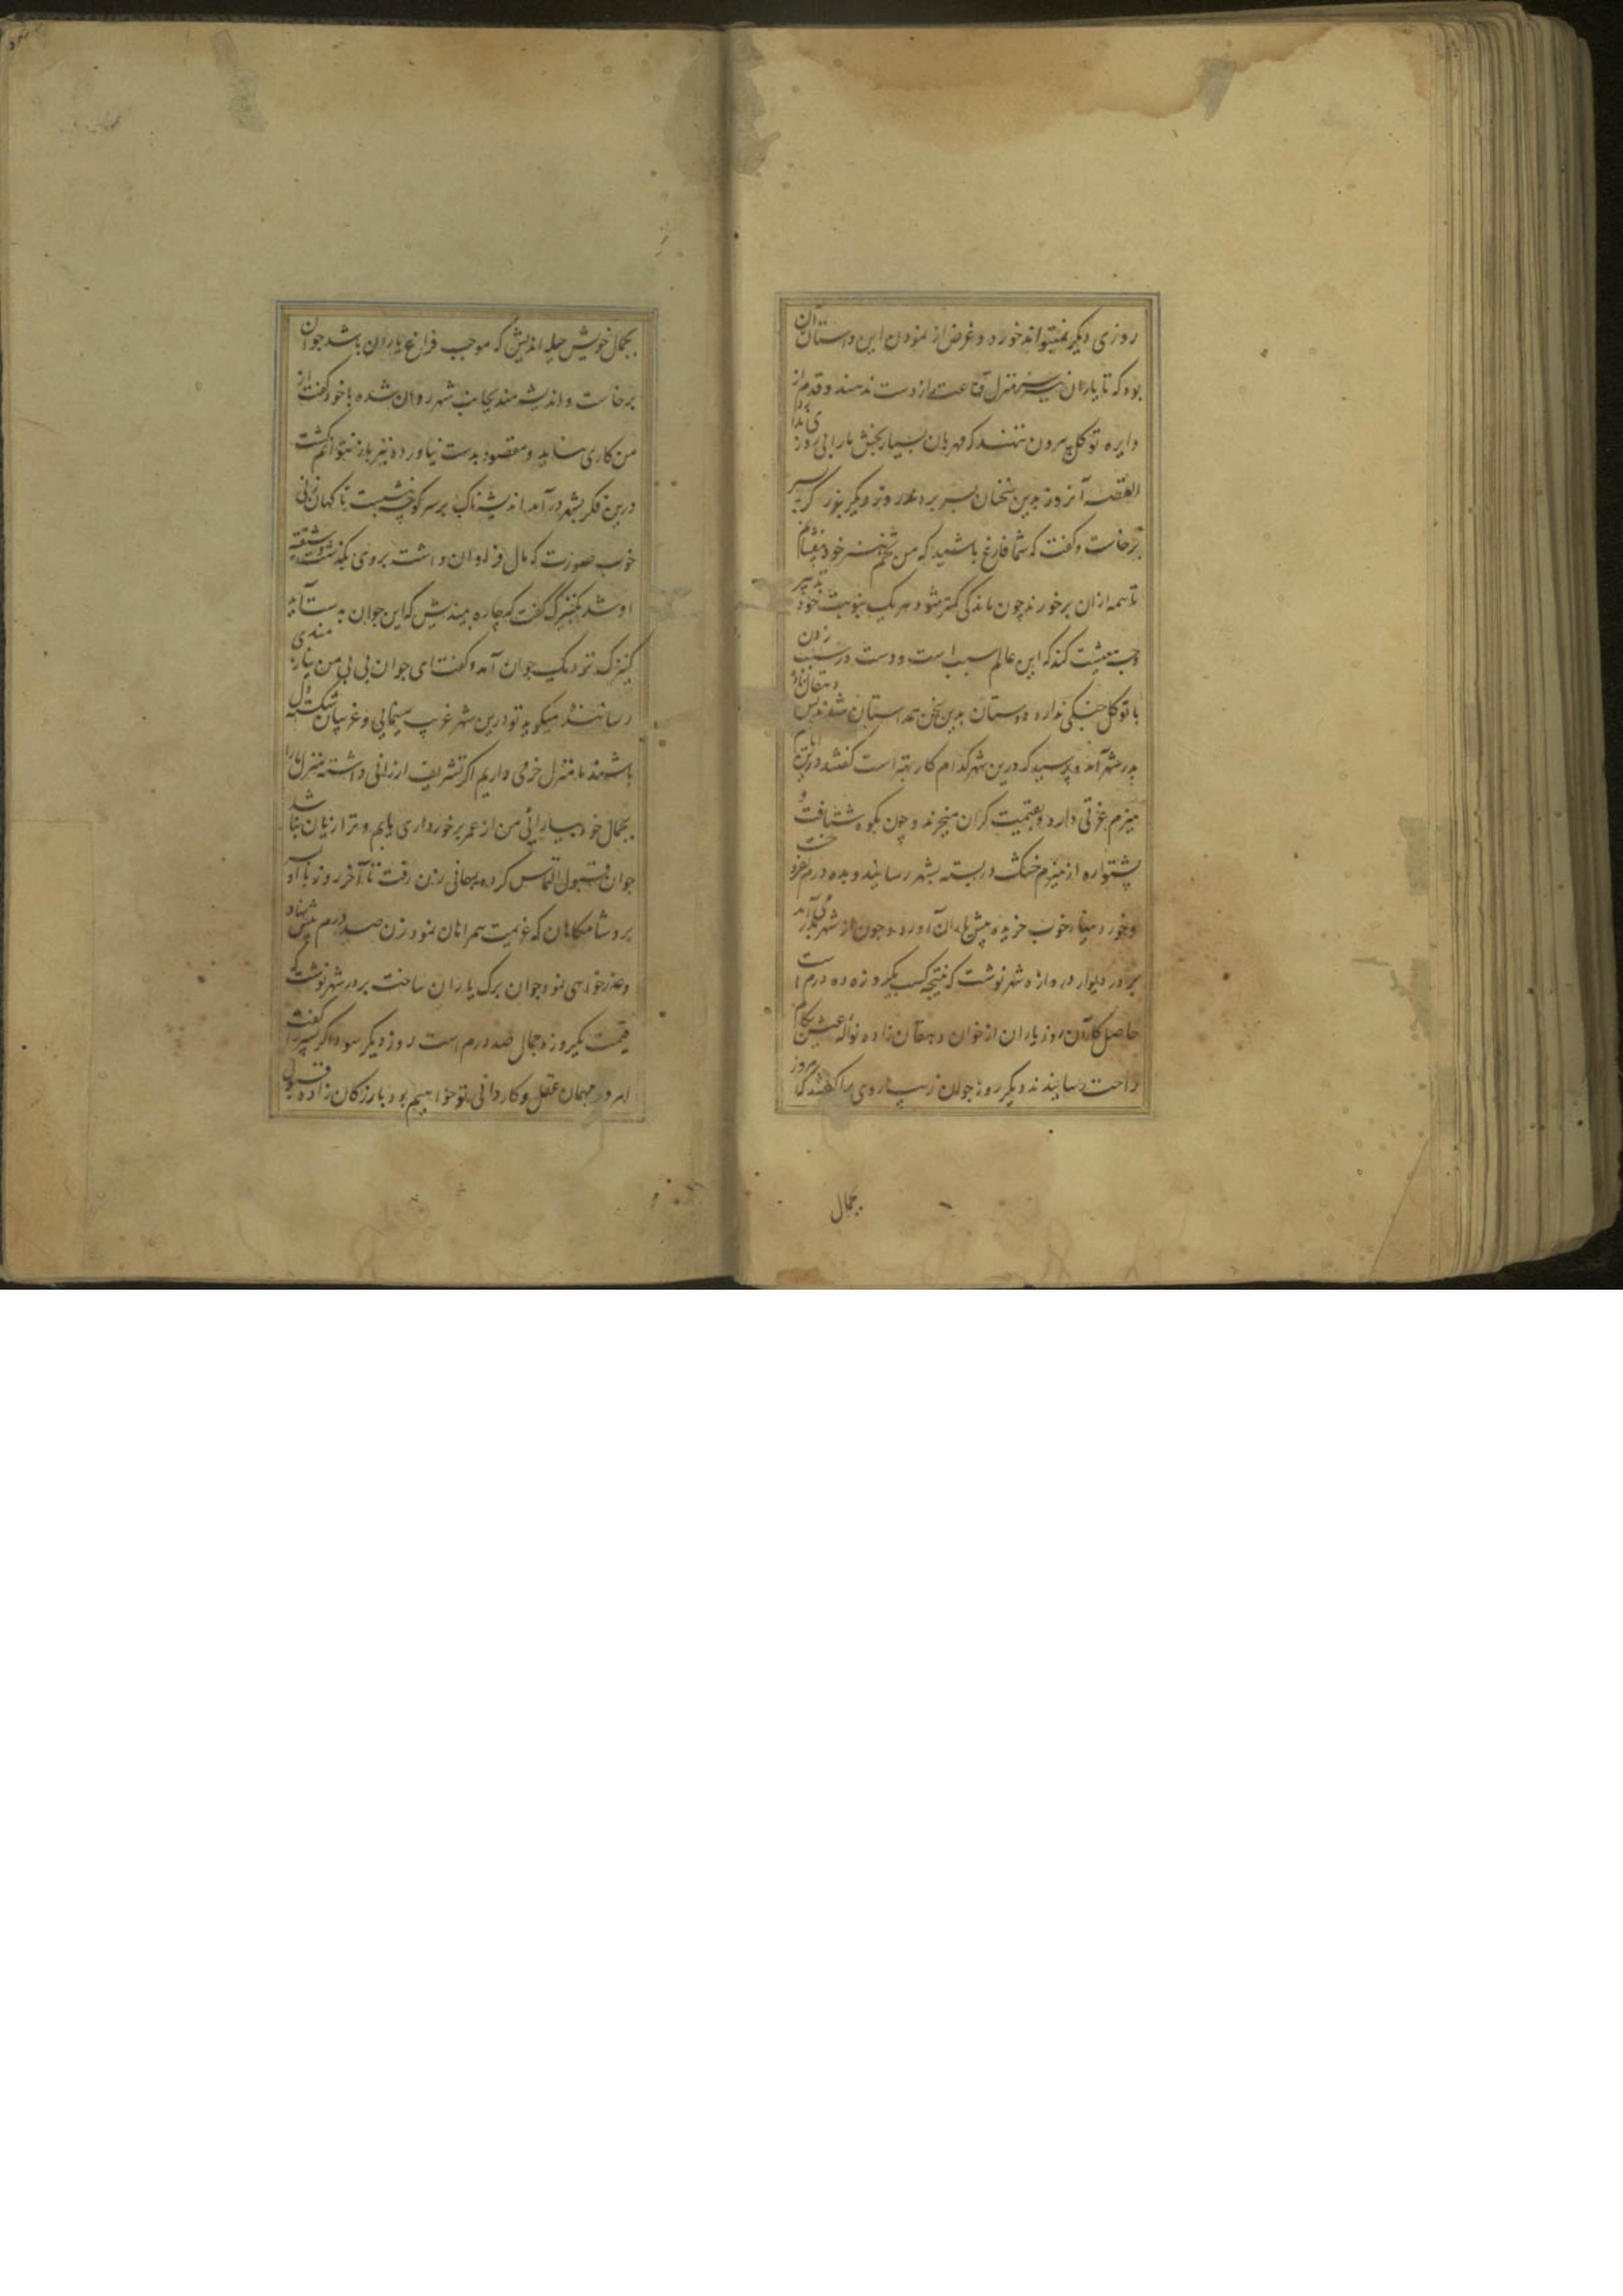 روزی دیگر نمیتواند خورد و غرض از نمودن این داستان آن
بود که تا یاران سر منزل قناعت از دست ندهند و قدم از
دایره توکل بیرون ننهند که
القصه آنروز بدین سخنان بسر بردند روز دیگر برزگر
برخاست و گفت که شما فارغ باشید که من
تا همه از آن برخورند چون ماندگی کمتر شود هر یک بنوبت خود تدبیر
وجه معیشت کند که این عالم سبب است و دست در سبب زدن
با توکل جنگی ندارد دوستان بدین سخن همداستان شدند پس دهقان زاده
بدر شهر آمد و پرسید که درین شهر کدام کار بهتر است گفتند درین ایام
هیزم عزتی دارد و بقیمت گران میخرند و چون بکوه شتافت و
پشتواره از هیزم خشک در بسته بشهر رسانید و بده درم بفروخت
و خوردنیهاء خوب خریده پیش یاران آورد و چون از شهر بدر می آمد
بر در دیوار دروازه شهر نوشت که نتیجه کسب یکروزه ده درم است
حاصل کار آن روز یاران از خوان دهقان زاده نواله عیش بکام
راحت رسانیدند دیگر روز جوان زیبا روی را گفتند که امروز
بجمال
بجمال خویش حیله اندیش که موجب فراغ یاران باشد جوان
برخاست و اندیشه مند بجانب شهر روان شده با خود گفت از
من کاری نیاید و مقصود بدست نیاورده نیز باز نتوانم گشت
درین فکر بشهر درآمد اندیشه ناک بر سر کوچه نشست ناگهان زنی
خوب صورت که مال فراوان داشت بروی بگذشت و شیفته
او شد کنیزک گفت که چاره بیندیش که این جوان بدست آید
کنیزک نزدیک جوان آمد و گفت ای جوان بی بی من نیازمندی
رسانیده میگوید تو درین شهر غریب مینمایی و غریبان شکسته دل
باشند ما منزل خرمی داریم اگر تشریف ارزانی داشته منزل ما را
بجمال خود بیارائی من از عمر برخورداری یابم و ترا زیان نباشد
جوان قبول التماس کرده بمهمانی زن رفت تا آخر روز با او
بسر برد شامگاهان که عزیمت همراهان نمود زن صد درم پیش نهاد
و عذرخواهی نمود جوان برگ یاران ساخت بر در شهر نوشت که
قیمت یکروزه جمال صد درم است روز دیگر سوداگر پسر را گفتند
امروز مهمان عقل و کاردانی تو خواهیم بود بازرگان زاده قبول